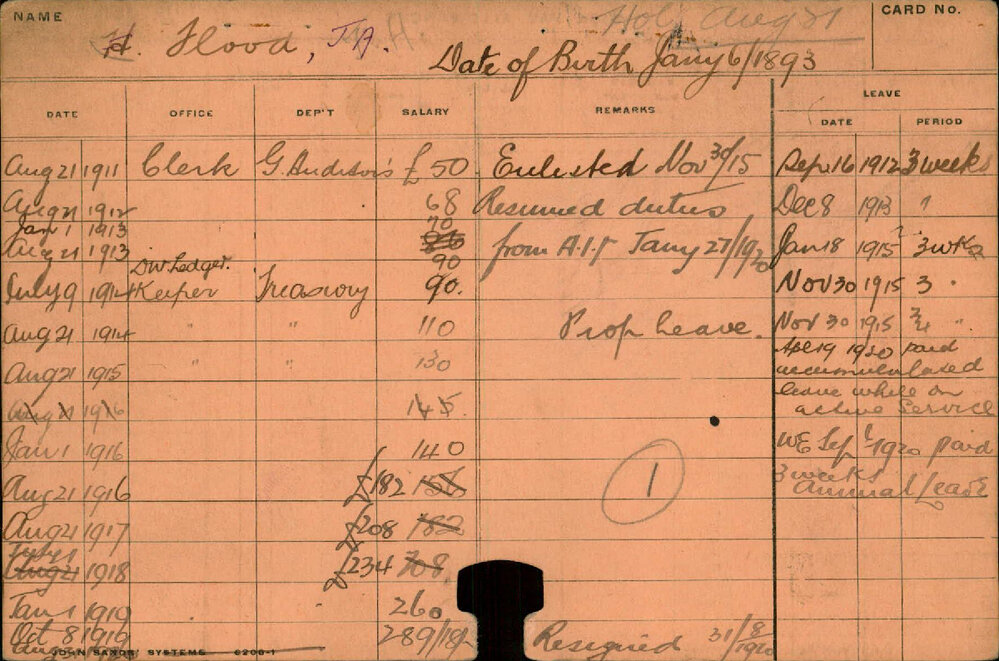 NAME
Hol. Aug 21
CARD No.
Flood, J.A.
Date of Birth Jany 6/1893
LEAVE
DATE OFFICE DEP'T SALARY REMARKS DATE PERIOD
Aug 21 1911 Clerk £50 Enlisted Nov 30/15 Sep 16 1912 3 weeks
Aug 21 1912 68 Resumed duties Dec 8 1913 "
Jan 1 1913 70
Aug 21 1913 90 from A.I.F Jany 27/1920 Jan 18 1915 3 wks
DW Ledger
July 9 1914 Keeper Treasury 90. Nov 30 1915 3 "
Aug 21 1914 " " 110 Prop leave. Nov 30 1915 "
Aug 21 1915 " " 130 Apl 19 1920 paid
accumulated
leave while on
Aug 21 1916 145 active service
Jan 1 1916 140 WE Sep 1920 paid
3 weeks
Aug 21 1916 £182 156 1 annual leave
Aug 21 1917 £208 182
Aug 21 1918 £234 208
Jan 1 1919 260
Oct 8 1919 289/18/- Resigned 31/8/1920
JOHN SANDS' SYSTEMS 6206-1